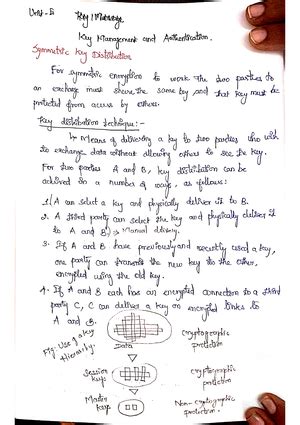 Unit-5
Key Management and Authentication.
Symmetric Key Distribution
For symmetric encryption to work the two parties to
an exchange must share the same key and that key must be
protected from access by others.
Key distribution technique:-
Means of delivering a key to two parties who wish
to exchange data without allowing others to see the key.
For two parties A and B, key distribution can be
achieved in a number of ways, as follows:
1. A can select a key and physically deliver it to B.
2. A third party can select the key and physically deliver it
to A and B. Manual delivery.
3. If A and B have previously and recently used a key,
one party can transmit the new key to the other,
encrypted using the old key.
4. If A and B each has an encrypted connection to a third
party C, C can deliver a key on encrypted links to
A and B.
Fig: Use of a key
Hierarchy.
Data
Cryptographic
protection
Session
keys
Cryptographic
protection
Master
keys
Non-cryptographic
protection.